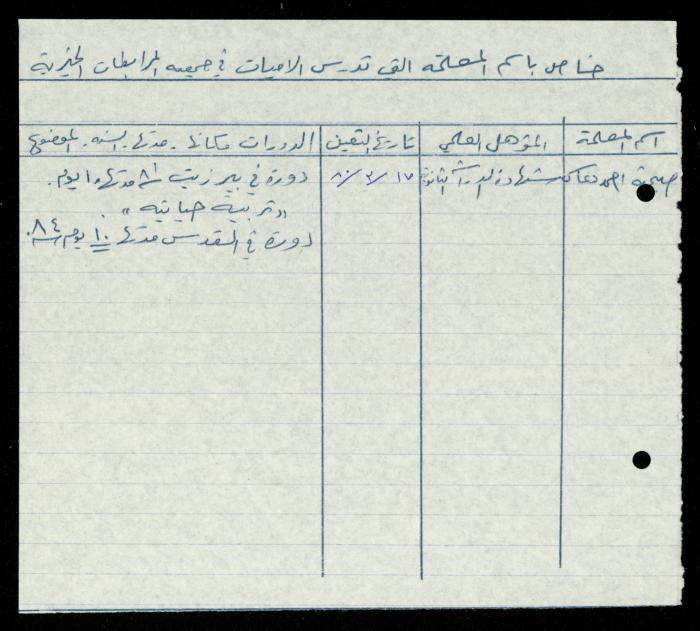 خاص باسم المعلمة التي تدرس الاميات في جمعيه المرابطات الخيرية
اسم المعلمة | المؤهل العلمي | تاريخ التعين | الدورات مكانها . مدتها . السنه . الموضوع
احمد | شهادة الدراسة الثانوية | ١٧/٣/٨٠ | دورة في بير زيت ٨١ مدتها ١٠ ايوم.
"تربية حياتيه".
دورة في القدس مدتها ١٠ يوم ٨٤.